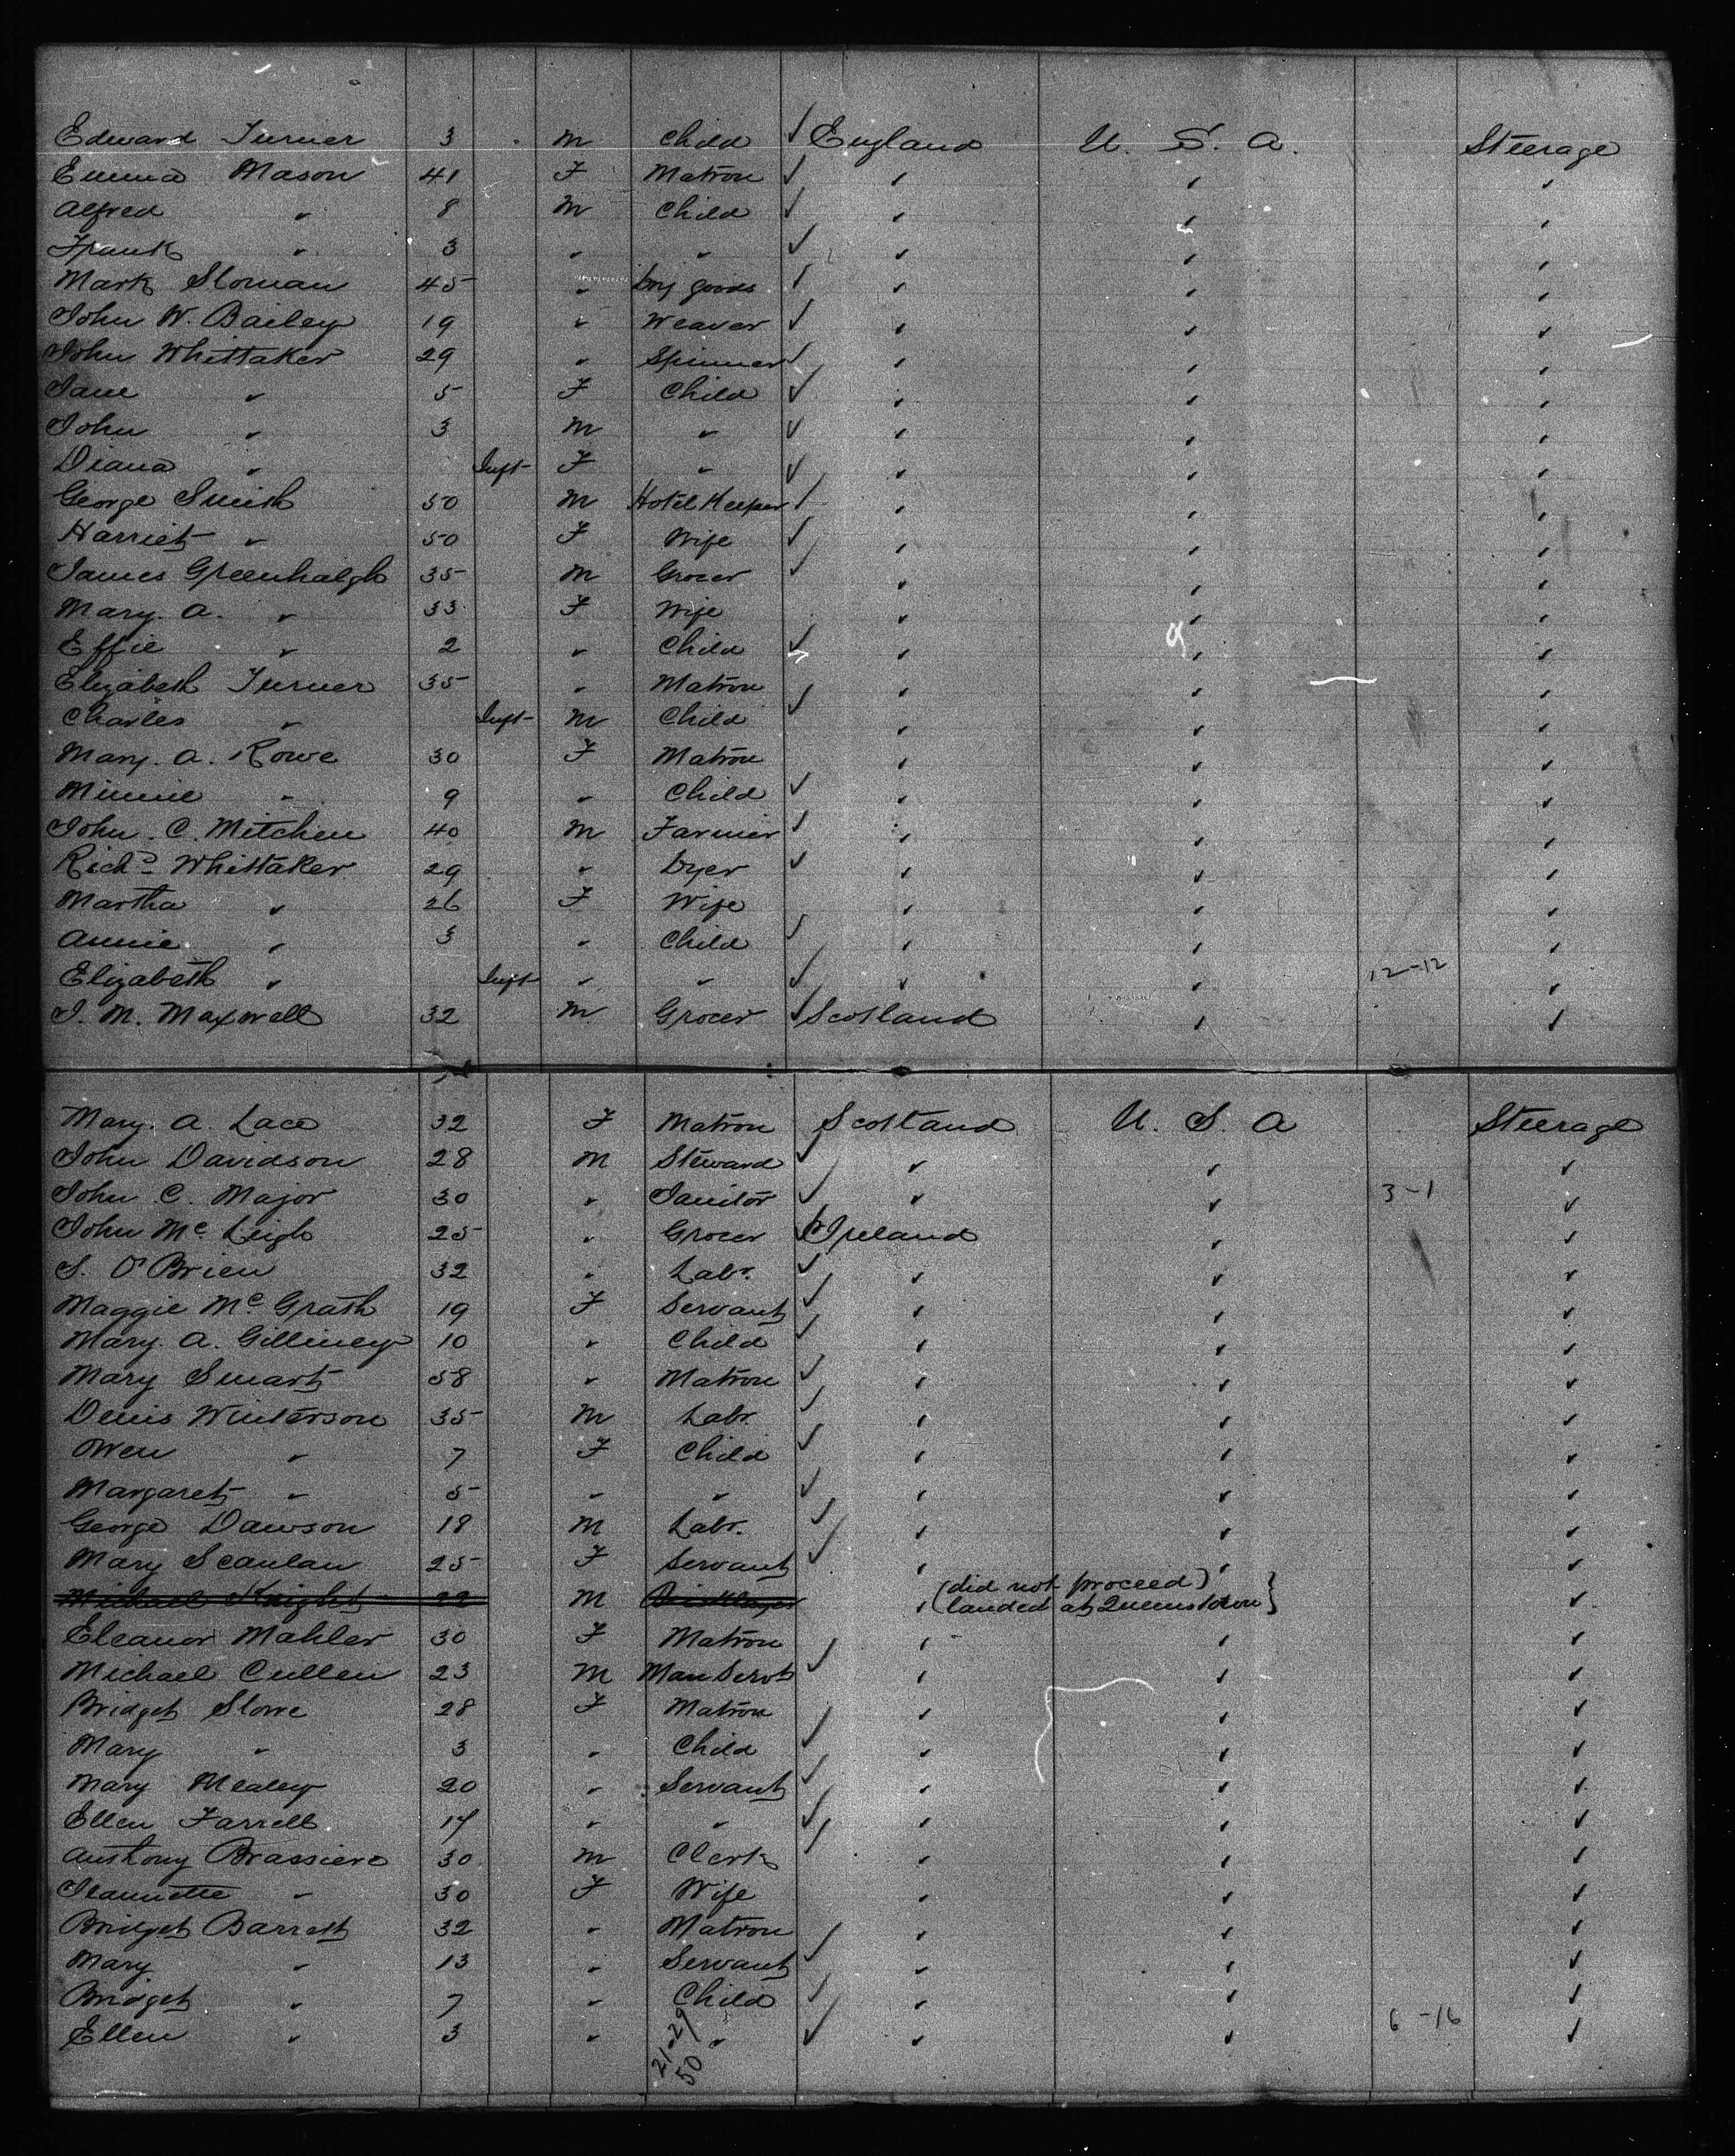 Edward Turner 3 m Child England U. S. A. Steerage
Emma Mason 41 F Matron " " "
Alfred " 8 m Child " " "
Frank " 3 " " " " "
Mark Sloman 45 " Dry goods " " "
John W. Bailey 19 " Weaver " " "
John Whittaker 29 " Spinner " " "
Jane " 5 F Child " " "
John " 3 m " " " "
Diana " Inft F " " " "
George Smith 50 m Hotel Keeper " " "
Harriet " 50 F Wife " " "
James Greenhalgh 35 m Grocer " " "
Mary. A. " 33 F Wife " " "
Effie " 2 " Child " " "
Elizabeth Turner 35 " Matron " " "
Charles " Inft m Child " " "
Mary. A. Rowe 30 F Matron " " "
Minnie " 9 " Child " " "
John. C. Mitchen 40 m Farmer " " "
Richd Whittaker 29 " Dyer " " "
Martha " 26 F Wife " " "
Annie " 3 " Child " " "
Elizabeth " Inft " " " " 12-12 "
J. M. Maxwell 32 m Grocer Scotland " "
Mary. A. Lace 32 F Matron Scotland U. S. A Steerage
John Davidson 28 m Steward " " "
John C. Major 30 " Janitor " " 3-1 "
John Mc Leigh 25 " Grocer Ireland " "
S. O'Brien 32 " Labr. " " "
Maggie Mc Grath 19 F Servant " " "
Mary. A. Gilliney 10 " Child " " "
Mary Smart 58 " Matron " " "
Denis Winterson 35 m Labr. " " "
Owen " 7 F Child " " "
Margaret " 5 " " " " "
George Dawson 18 m Labr. " " "
Mary Scanlan 25 F Servant " " "
(did not proceed)
Michael Knight 22 m Bricklayer " (landed at Queenstown) "
Eleanor Mahler 30 F Matron " " "
Michael Cullen 23 m Man Servt " " "
Bridget Slowe 28 F Matron " " "
Mary " 3 " Child " " "
Mary Mealey 20 " Servant " " "
Ellen Farrell 17 " " " " "
Anthony Brassiere 30 m Clerk " " "
Jeannette " 30 F Wife " " "
Bridget Barrett 32 " Matron " " "
Mary " 13 " Servant " " "
Bridget " 7 " Child " " "
Ellen " 3 " " " " 6-16 "
21-29
50